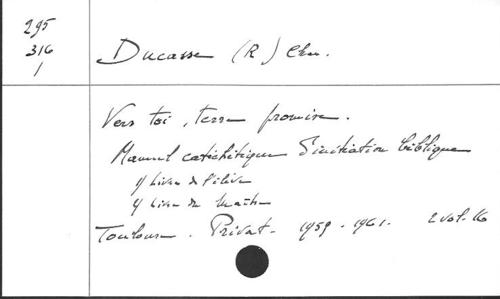 295
316
1
Ducasse (R) Chn.
Vers toi, terre promise.
Manuel catéchétique d'initiation biblique
1/ Livre de l'élève
2/ Livre du Maître
Toulouse. Privat. 1959-1961. 2 vol. 16